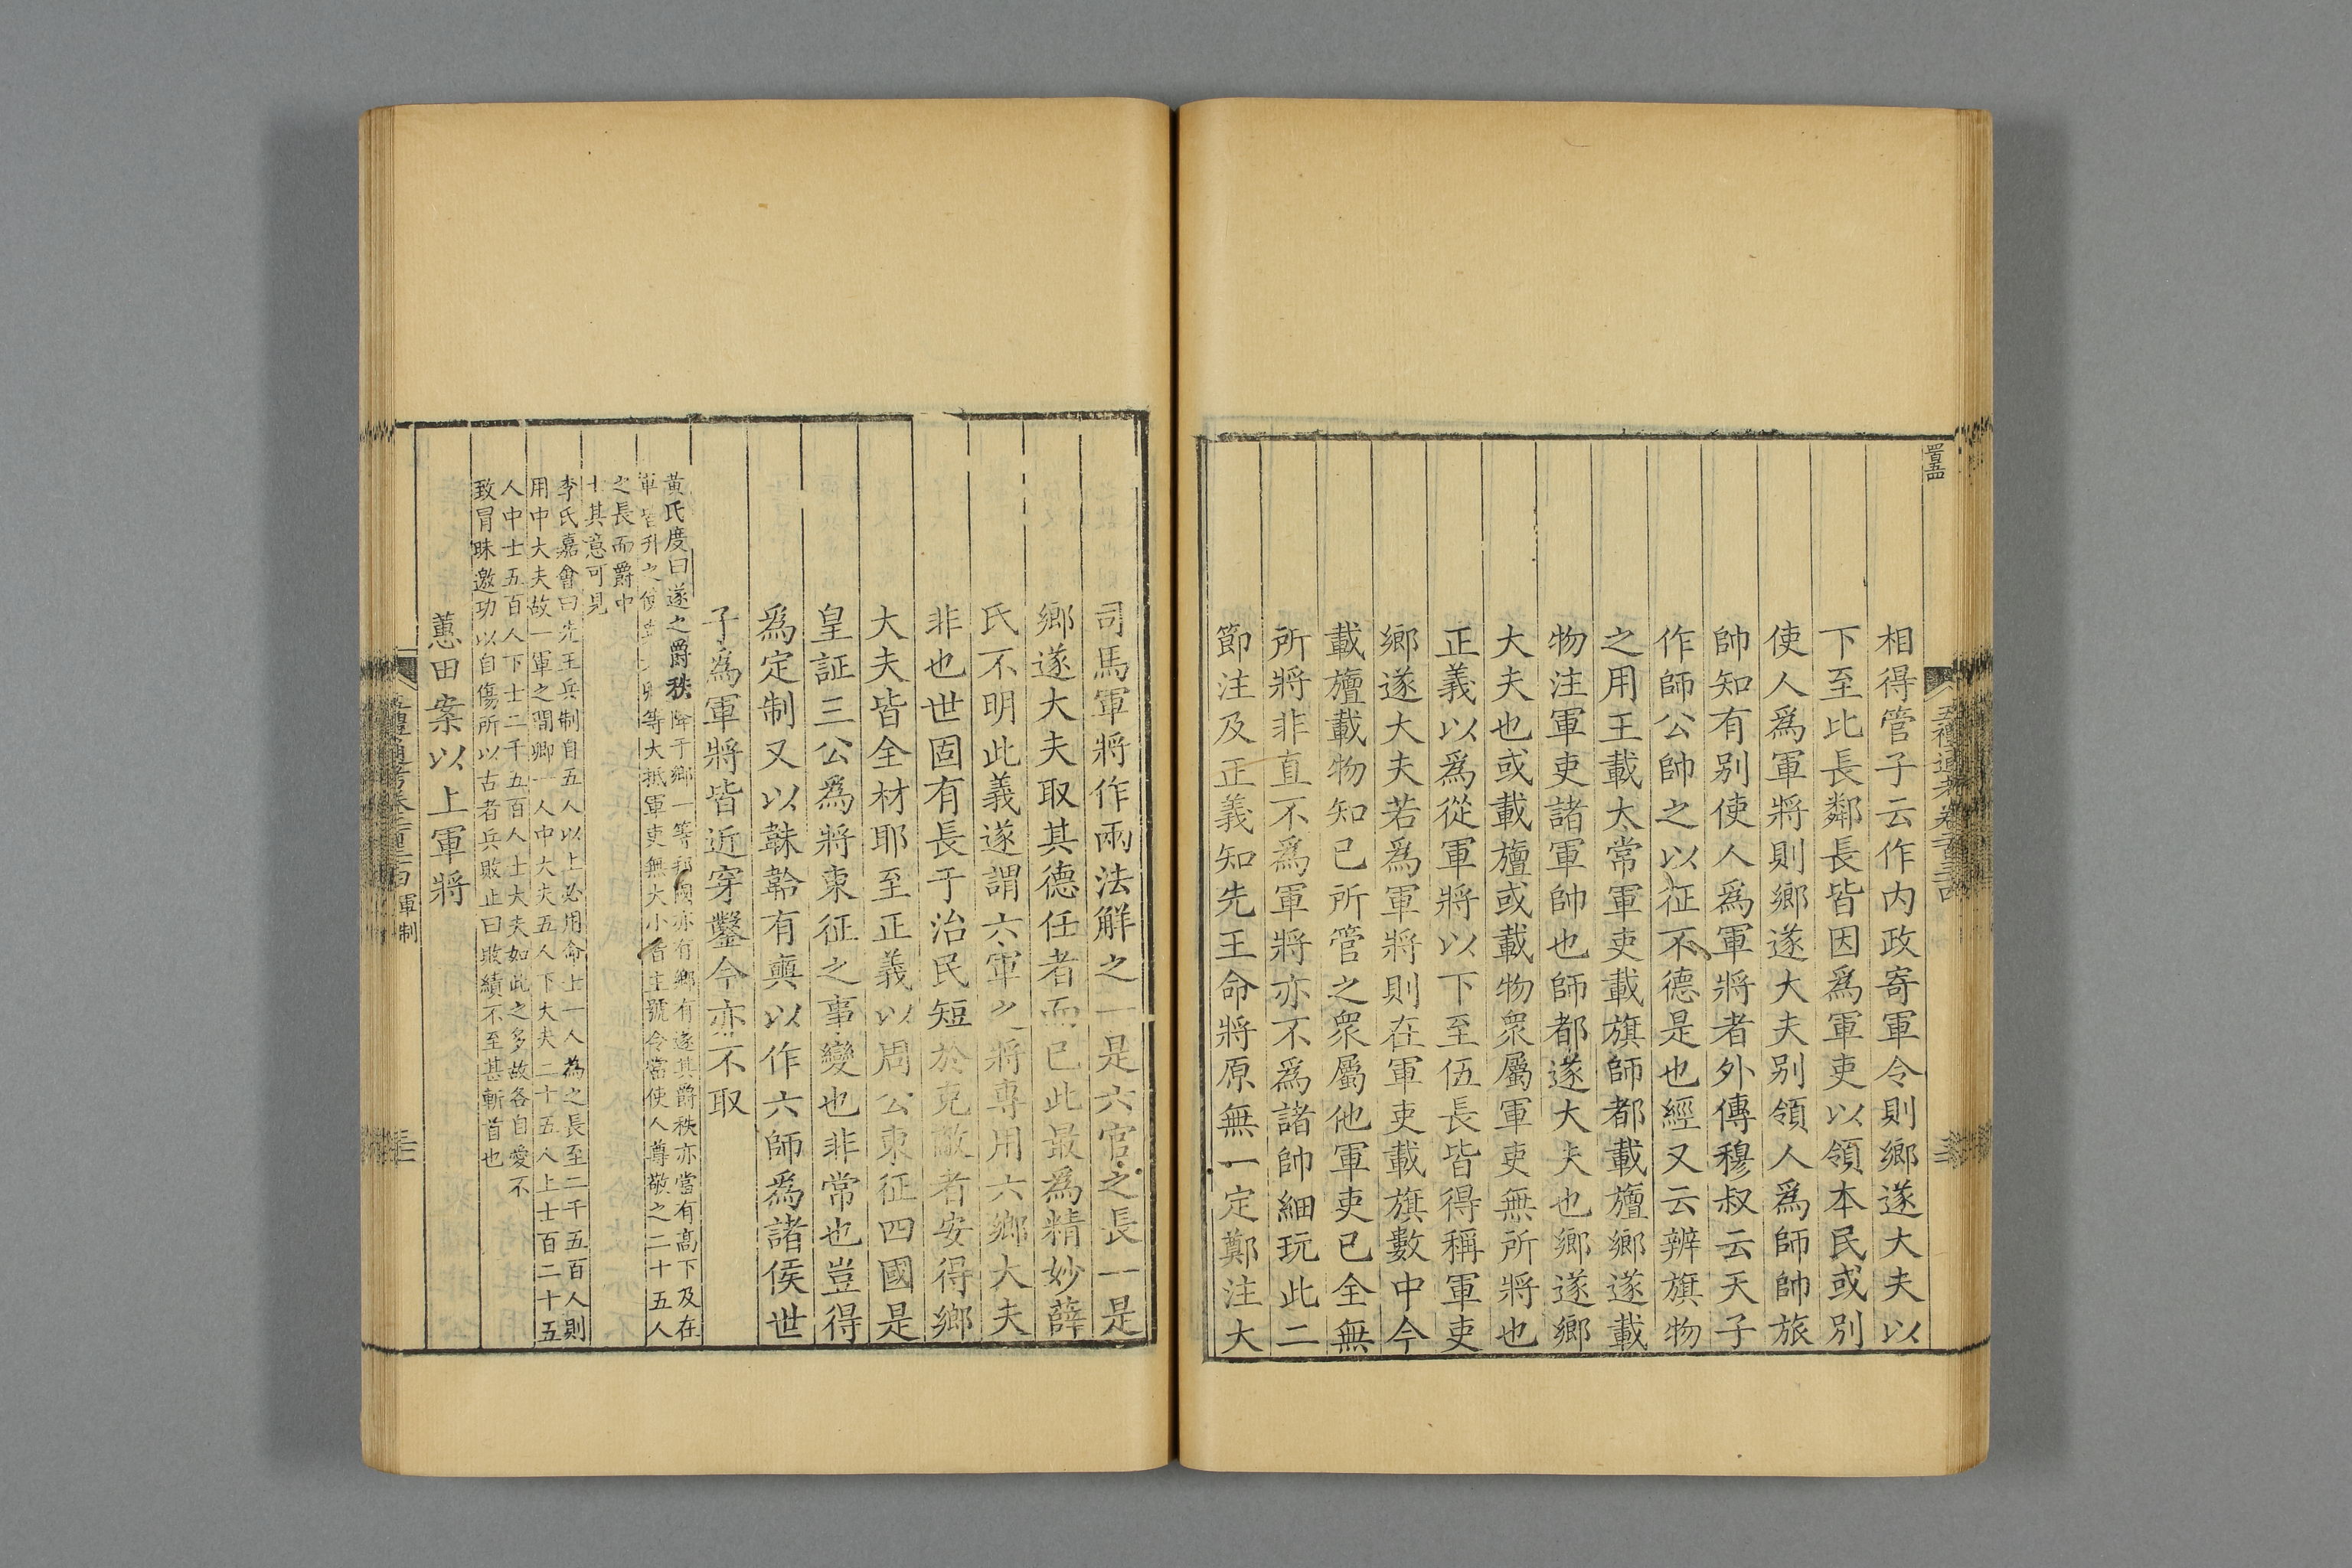 相得管子云作内政寄軍令則鄉遂大夫以
下至比長鄰長皆因爲軍吏以領本民或别
使人爲軍將則鄉遂大夫别領人爲師帥旅
帥知有别使人爲軍將者外傳穆叔云天子
作師公帥之以征不德是也經又云辨旗物
之用王載大常軍吏載旗師都載旜鄉遂載
物注軍吏諸軍帥也師都遂大夫也鄉遂鄉
大夫也或載旜或載物衆屬軍吏無所將也
正義以爲從軍將以下至伍長皆得稱軍吏
鄉遂大夫若爲軍將則在軍吏載旗數中今
載旜載物知已所管之衆屬他軍吏已全無
所將非直不爲軍將亦不爲諸帥細玩此二
節注及正義知先王命將原無一定鄭注大
司馬軍將作兩法解之一是六官之長一是
鄉遂大夫取其德任者而已此最爲精妙薛
氏不明此義遂謂六軍之將專用六鄉大夫
非也世固有長于治民短於克敵者安得鄉
大夫皆全材耶至正義以周公東征四國是
皇証三公爲將東征之事變也非常也豈得
爲定制又以韎韐有奭以作六師爲諸侯世
子爲軍將皆近穿鑿今亦不取
黄氏度曰遂之爵秩降于鄉一等都鄙亦有鄉有遂其爵秩亦當有高下及在
軍皆升之使等大抵軍吏無大小皆主號令當使人尊敬之二十五人
之長而爵中
士其意可見
李氏嘉會曰先王兵制自五人以上必用命士一人為之長至二千五百人則
用中大夫故一軍之間卿一人中大夫五人下大夫二十五人上士百二十五
人中士五百人下士二千五百人士大夫如此之多故各自愛不
致冒昧邀功以自傷所以古者兵敗止曰敗績不至甚斬首也
蕙田案以上軍將
五禮通考卷二百三十四
軍制